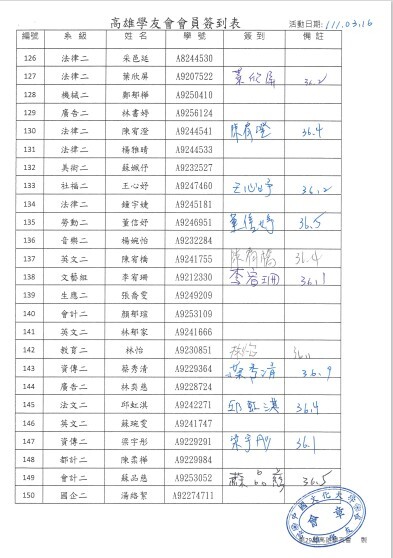 高雄學友會會員簽到表 活動日期: 111.03.16
編號 系級 姓名 學號 簽到 備註
126 法律二 采邑廷 A8244530
127 法律二 葉欣屏 A9207522 葉欣屏 36.2
128 機械二 鄭郁樺 A9250410
129 廣告二 林書婷 A9256124
130 法律二 陳宥澄 A9244541 陳宥澄 36.4
131 法律二 楊雅晴 A9244533
132 美術二 蘇姵伃 A9232527
133 社福二 王心妤 A9247460 王心妤 36.2
134 法律二 鍾宇婕 A9245181
135 勞動二 董信妤 A9246951 董信妤 36.5
136 音樂二 楊婉怡 A9232284
137 英文二 陳宥橋 A9241755 陳宥橋 36.4
138 文藝組 李宥珊 A9212330 李宥珊 36.1
139 生應二 張喬雯 A9249209
140 會計二 顏郁瑄 A9253109
141 英文二 林郁家 A9241666
142 教育二 林怡 A9230851 林怡
143 資傳二 蔡秀清 A9229364 蔡秀清 36.9
144 廣告二 林奕慈 A9228724
145 法文二 邱虹淇 A9242271 邱虹淇 36.4
146 英文二 蘇琬雯 A9241747
147 資傳二 梁宇彤 A9229291 梁宇彤 36.1
148 都計二 陳柔樺 A9229984
149 會計二 蘇品慈 A9253052 蘇品慈 36.5
150 國企二 湯絡絜 A92274711
中國文化大學
會章